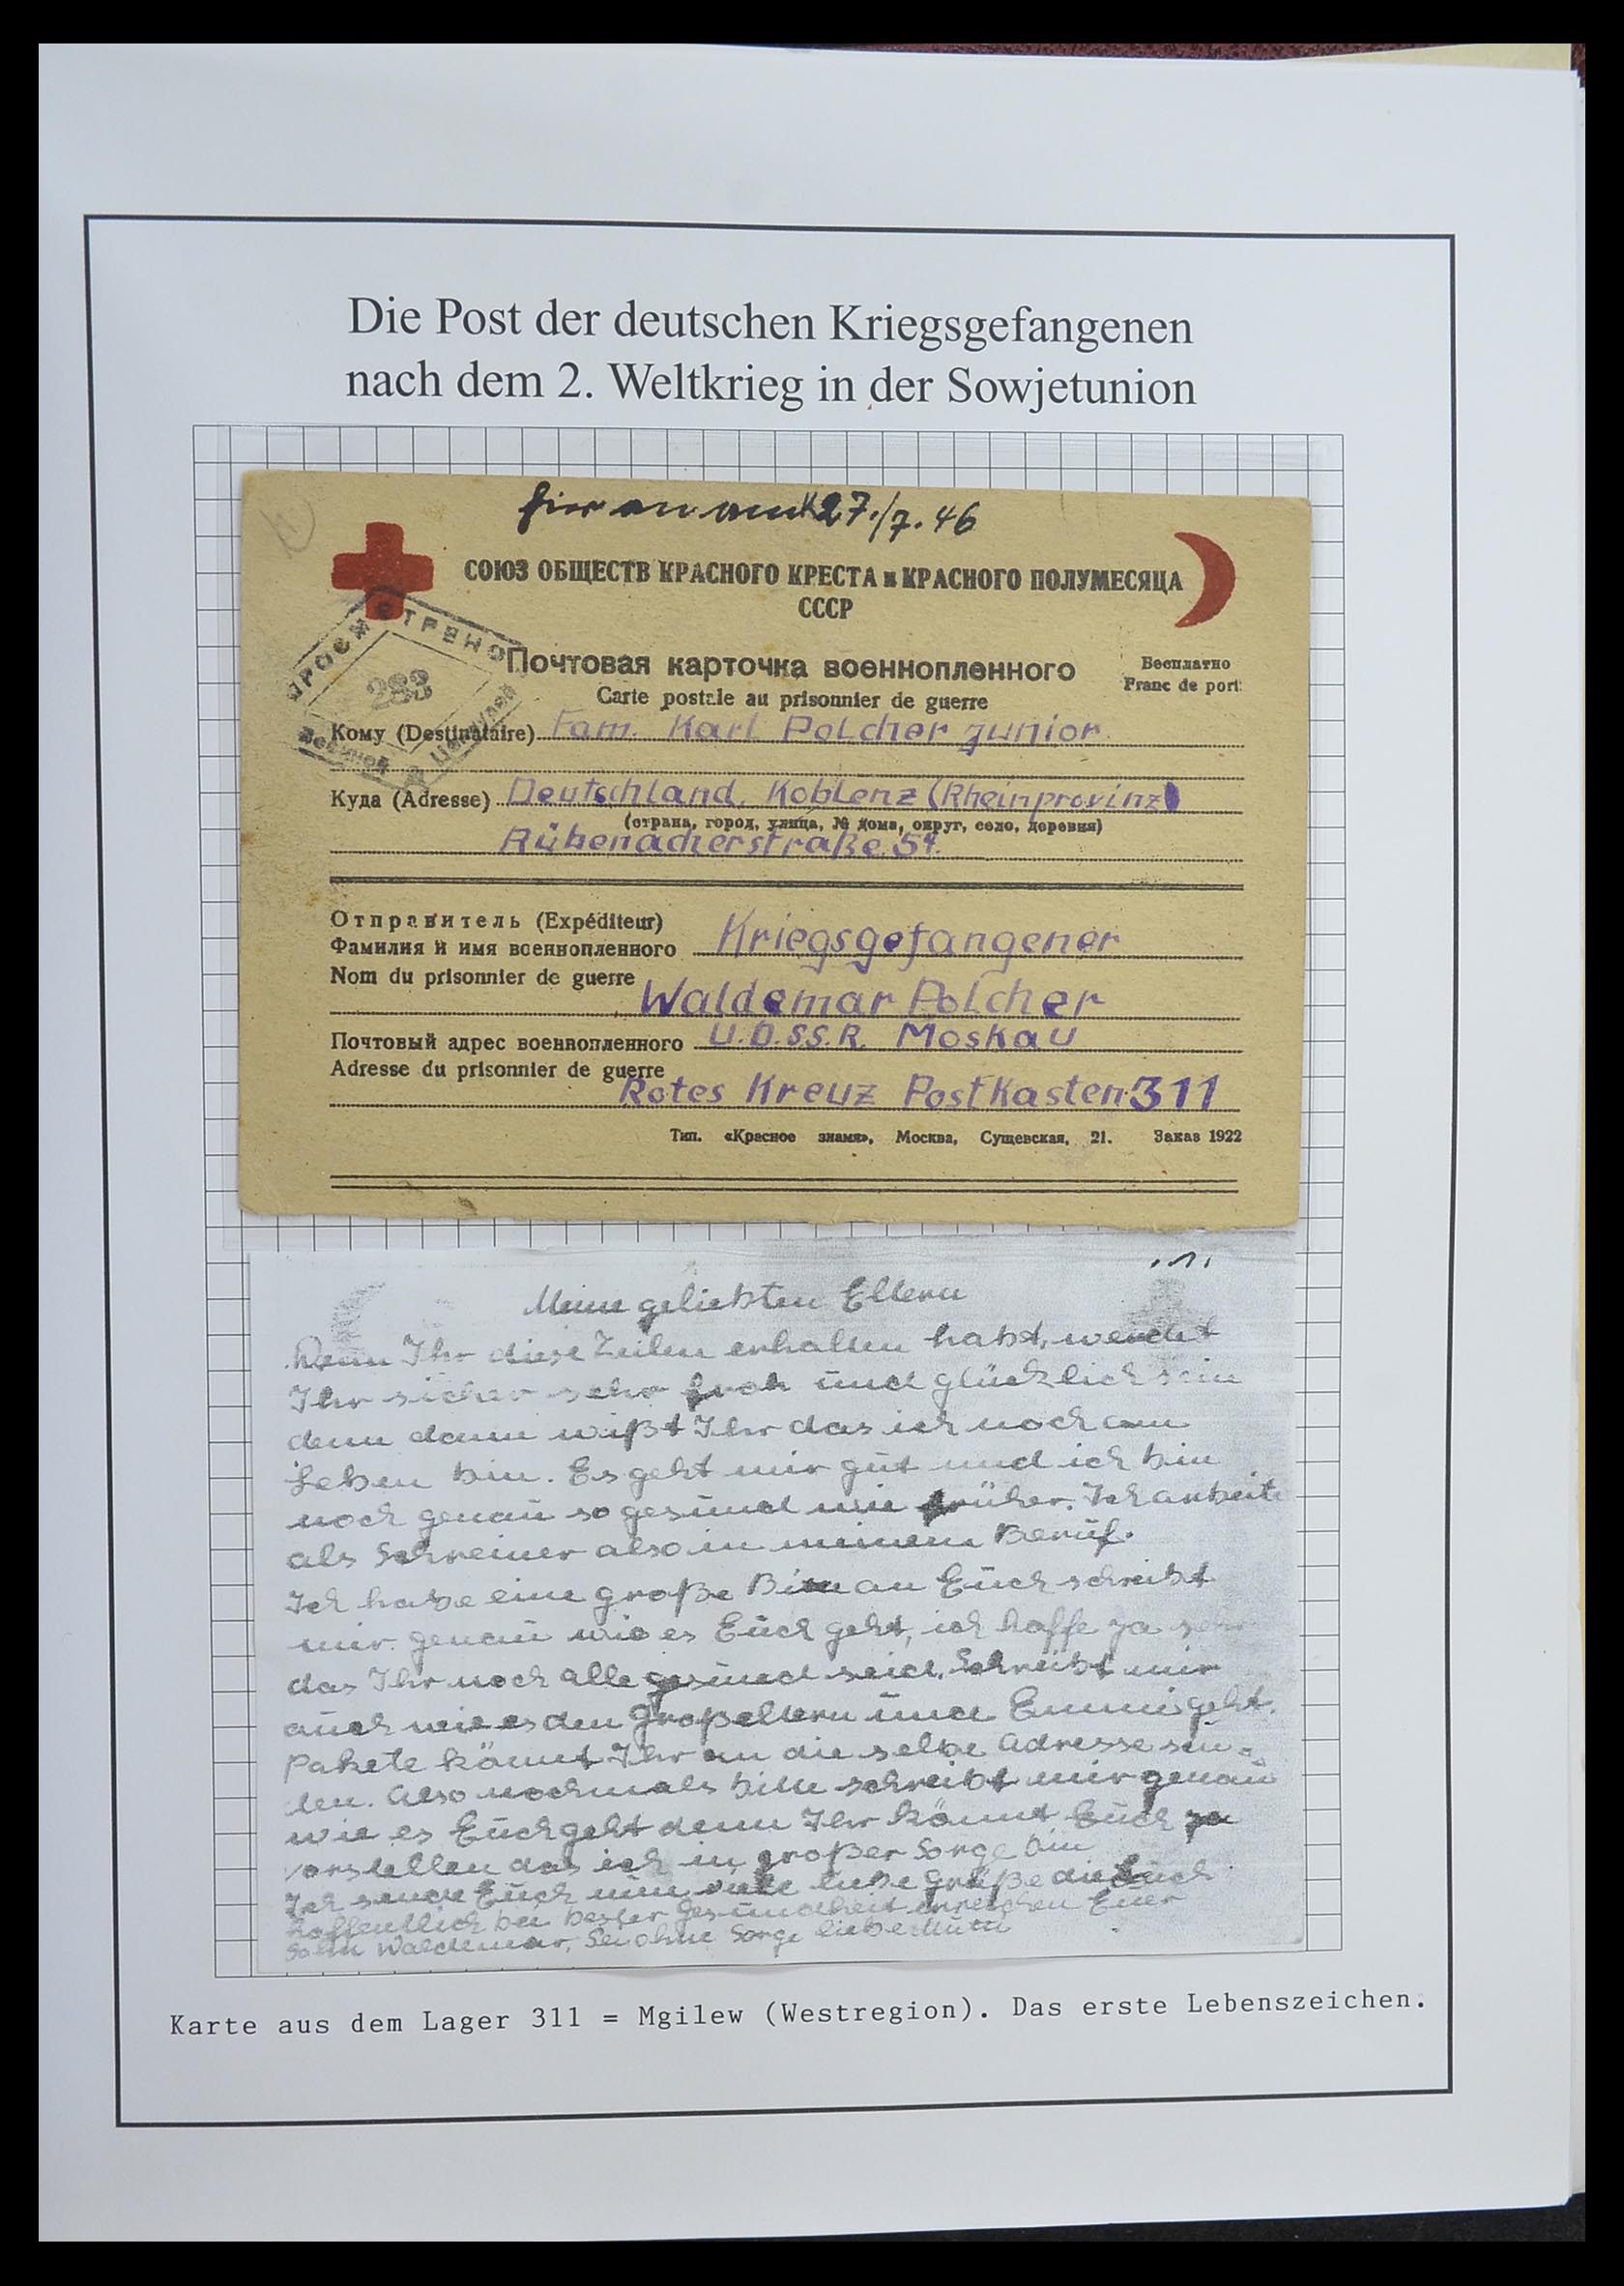 Die Post der deutschen Kriegsgefangenen
nach dem 2. Weltkrieg in der Sowjetunion
27./7.46
СОЮЗ ОБЩЕСТВ КРАСНОГО КРЕСТА и КРАСНОГО ПОЛУМЕСЯЦА
СССР
ПРОСМОТРЕНО
283
Военной Цензурой
Почтовая карточка военнопленного
Бесплатно
Carte postale au prisonnier de guerre
Franc de port
Кому (Destinataire) Fam. Karl Polcher junior
Куда (Adresse) Deutschland. Koblenz (Rheinprovinz)
(страна, город, улица, № дома, округ, село, деревня)
Rübenacherstraße 54.
Отправитель (Expéditeur)
Фамилия и имя военнопленного Kriegsgefangener
Nom du prisonnier de guerre
Waldemar Polcher
Почтовый адрес военнопленного U.D.S.S.R. Moskau
Adresse du prisonnier de guerre
Rotes Kreuz Postkasten 311
Тип. «Красное знамя», Москва, Сущевская, 21. Заказ 1922
.1.
Meine geliebten Eltern
Wenn Ihr diese Zeilen erhalten habt, werdet
Ihr sicher sehr froh und glücklich sein
denn dann wißt Ihr das ich noch am
Leben bin. Es geht mir gut und ich bin
noch genau so gesund wie früher. Ich arbeite
als Schreiner also in meinem Beruf.
Ich habe eine große Bitte an Euch schreibt
mir genau wie es Euch geht, ich hoffe ja sehr
das Ihr noch alle gesund seid. Schreibt mir
auch wie es den Großeltern und geht.
Pakete könnt Ihr an die selbe Adresse sen-
den. Also nochmals bitte schreibt mir genau
wie es Euch geht denn Ihr könnt Euch ja
vorstellen das ich in großer Sorge bin
Ich sende Euch nun viele liebe Grüße die Euch
hoffentlich bei bester Gesundheit erreichen Euer
Sohn Waldemar. Sei ohne Sorge liebe Mutti
Karte aus dem Lager 311 = Mgilew (Westregion). Das erste Lebenszeichen.